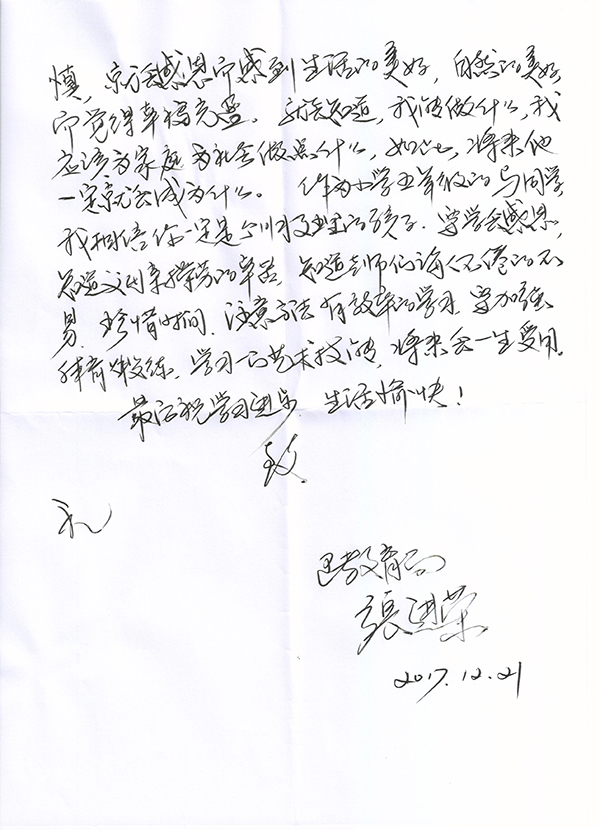 慎，就会感恩而感到生活的美好，自然的美好，
而觉得幸福充盈。 知道，我能做什么，我
应该为家庭为社会做点什么，如此，将来他
一定就会成为什么。 作为小学五年级的 同学
我相信你一定是个 的孩子。要学会感恩，
知道父母亲 劳的辛苦，知道老师们诲人不倦的不
易，珍惜时间，注意方法，有效率的学习，要加强
体育锻炼，学习一门艺术技能，将来会一生受用。
最后祝学习进步，生活愉快！
致
礼
教育局
张进荣
2017.12.21